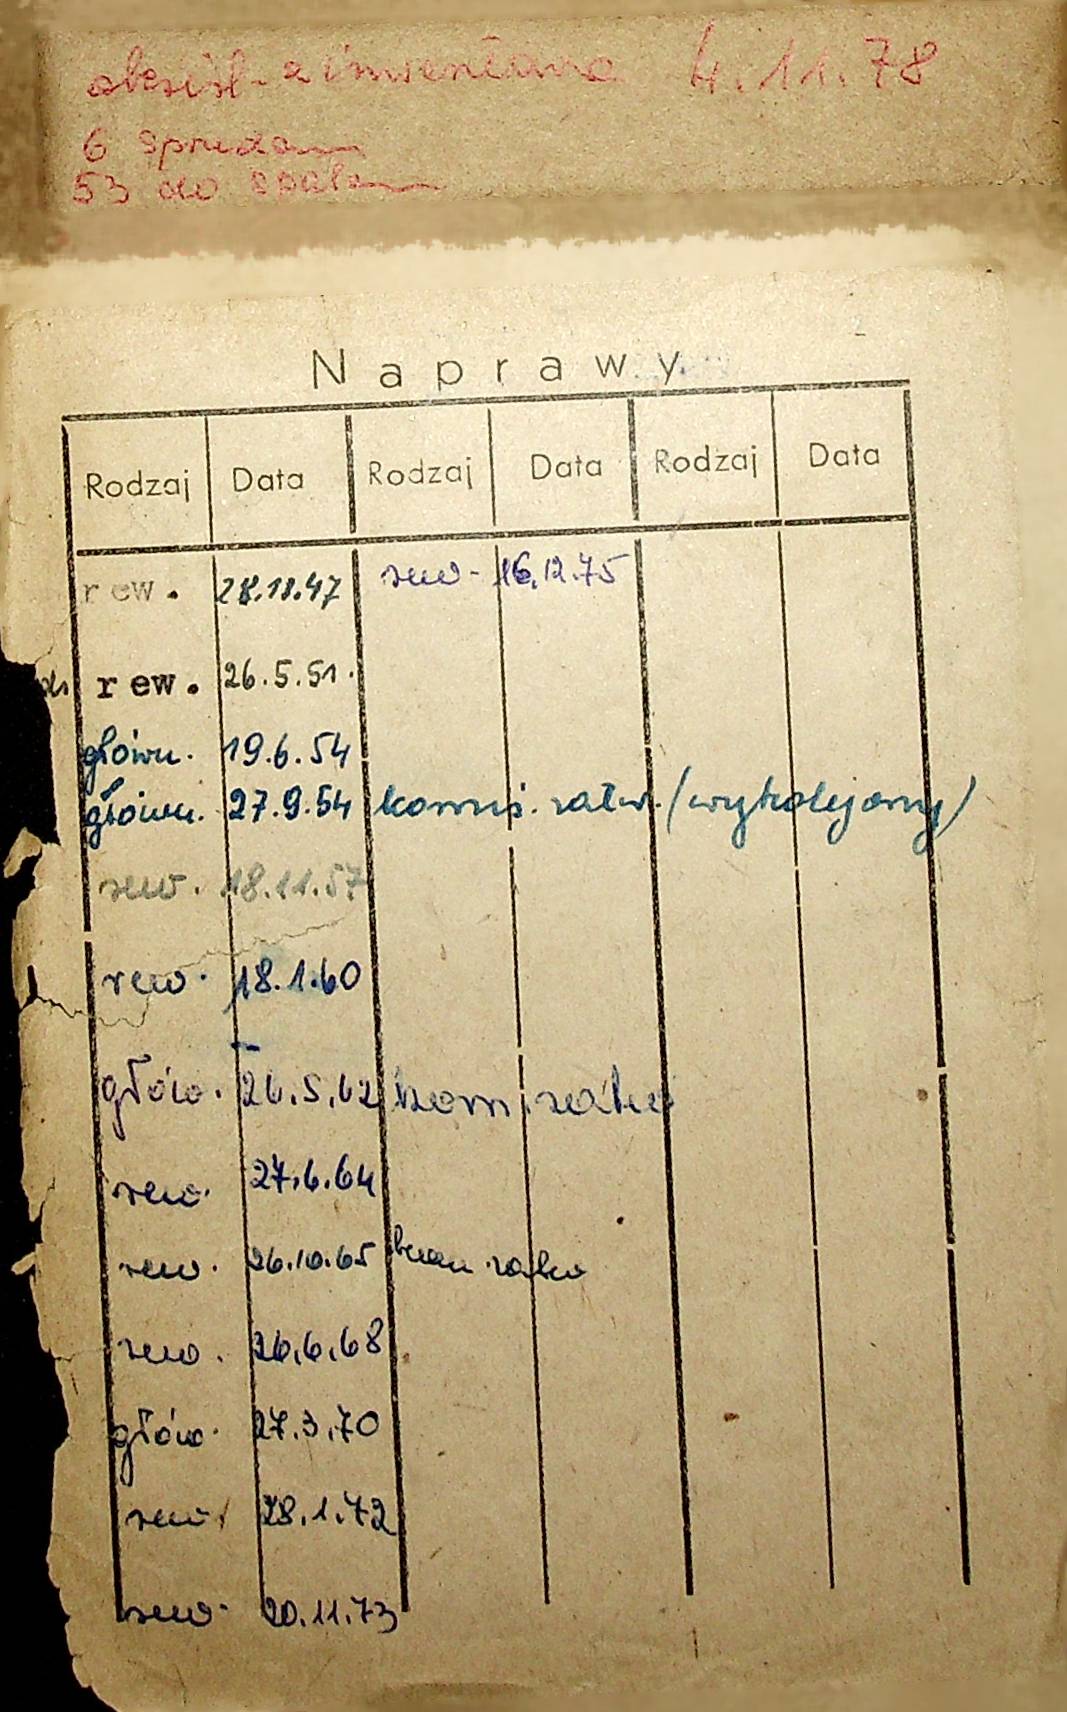 z inwentarza 4.11.78
6 sprzedam
53 do
Naprawy
Rodzaj Data Rodzaj Data Rodzaj Data
rew. 28.11.47 rew- 16.12.75
rew. 26.5.51.
główn. 19.6.54
główn. 27.9.54 komis. ratw. (wykolejony)
rew. 18.11.57
rew. 18.1.60
głów. 26.5.62 kom.
rew. 27.6.64
rew. 26.10.65
rew. 26.6.68
głów. 27.3.70
rew. 28.1.72
rew. 20.11.73